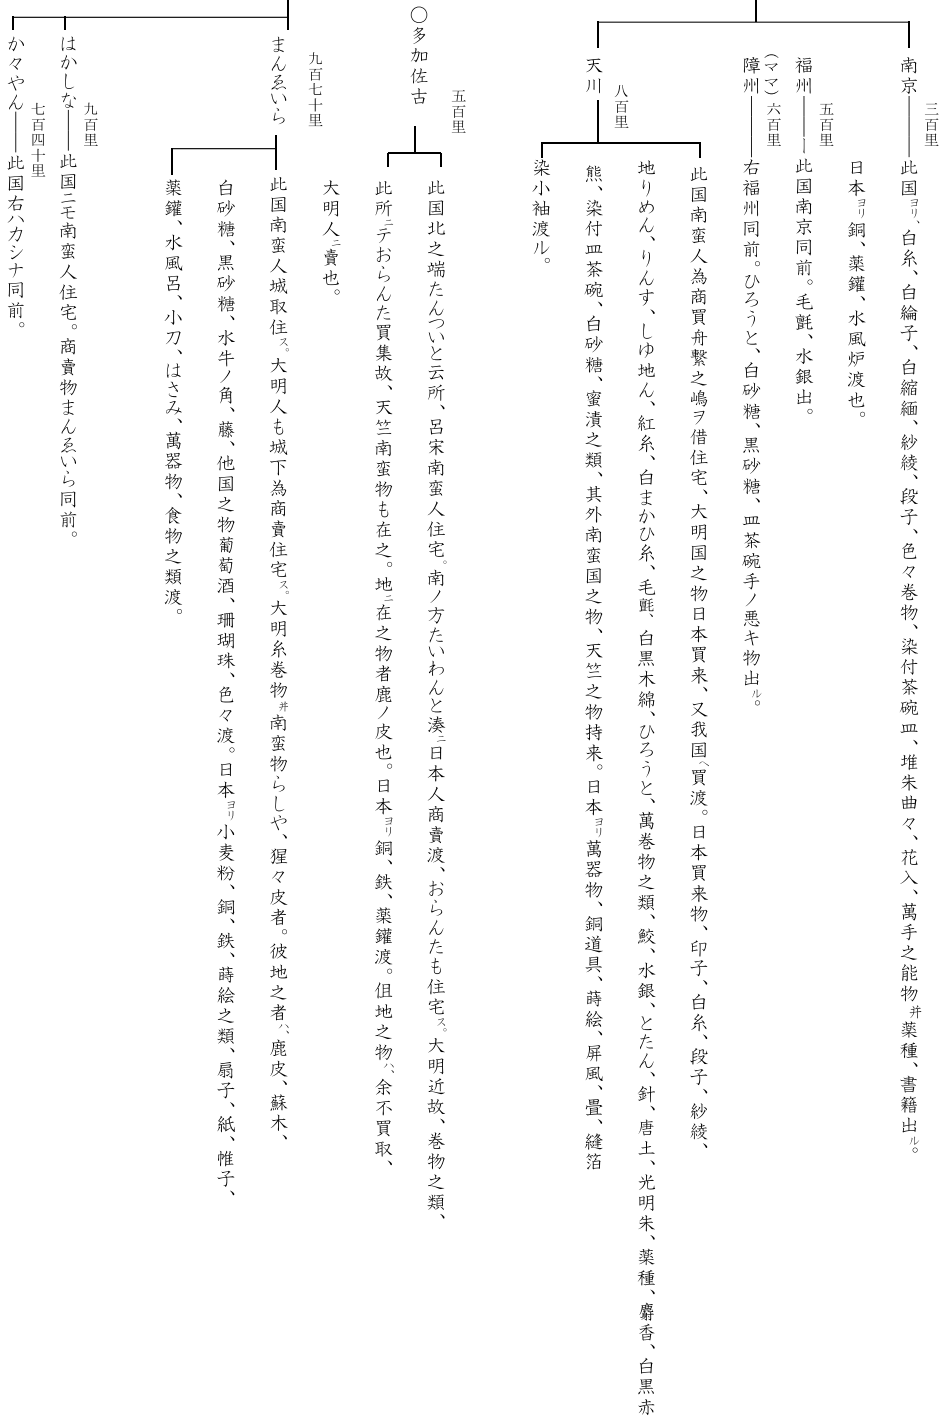 三百里
南京――此国ヨリ、白糸、白綸子、白縮緬、紗綾、段子、色々巻物、染付茶碗皿、堆朱曲々、花入、萬手之能物并薬種、書籍出ル。
日本ヨリ銅、薬鑵、水風炉渡也。
五百里
福州――此国南京同前。毛氈、水銀出。
(ママ)六百里
障州――右福州同前。ひろうと、白砂糖、黒砂糖、皿茶碗手ノ悪キ物出ル。
八百里
天川
此国南蛮人為商買舟繋之嶋ヲ借住宅、大明国之物日本買来、又我国ヘ買渡。日本買来物、印子、白糸、段子、紗綾、
地りめん、りんす、しゆ地ん、紅糸、白まかひ糸、毛氈、白黒木綿、ひろうと、萬巻物之類、鮫、水銀、とたん、針、唐土、光明朱、薬種、麝香、白黒赤
熊、染付皿茶碗、白砂糖、蜜漬之類、其外南蛮国之物、天竺之物持来。日本ヨリ萬器物、銅道具、蒔絵、屏風、畳、縫箔
染小袖渡ル。
五百里
〇多加佐古
此国北之端たんついと云所、呂宋南蛮人住宅。南ノ方たいわんと湊ニ日本人商賣渡、おらんたも住宅ス。大明近故、巻物之類、
此所ニテおらんた買集故、天竺南蛮物も在之。地ニ在之物者鹿ノ皮也。日本ヨリ銅、鉄、薬鑵渡。伹地之物ハ、余不買取、
大明人ニ賣也。
九百七十里
まんゑいら
此国南蛮人城取住ス。大明人も城下為商賣住宅ス。大明糸巻物并南蛮物らしや、猩々皮者。彼地之者ハ、鹿皮、蘇木、
白砂糖、黒砂糖、水牛ノ角、藤、他国之物葡萄酒、珊瑚珠、色々渡。日本ヨリ小麦粉、銅、鉄、蒔絵之類、扇子、紙、帷子、
薬鑵、水風呂、小刀、はさみ、萬器物、食物之類渡。
九百里
はかしな――此国ニモ南蛮人住宅。商賣物まんゑいら同前。
七百四十里
か々やん――此国右ハカシナ同前。